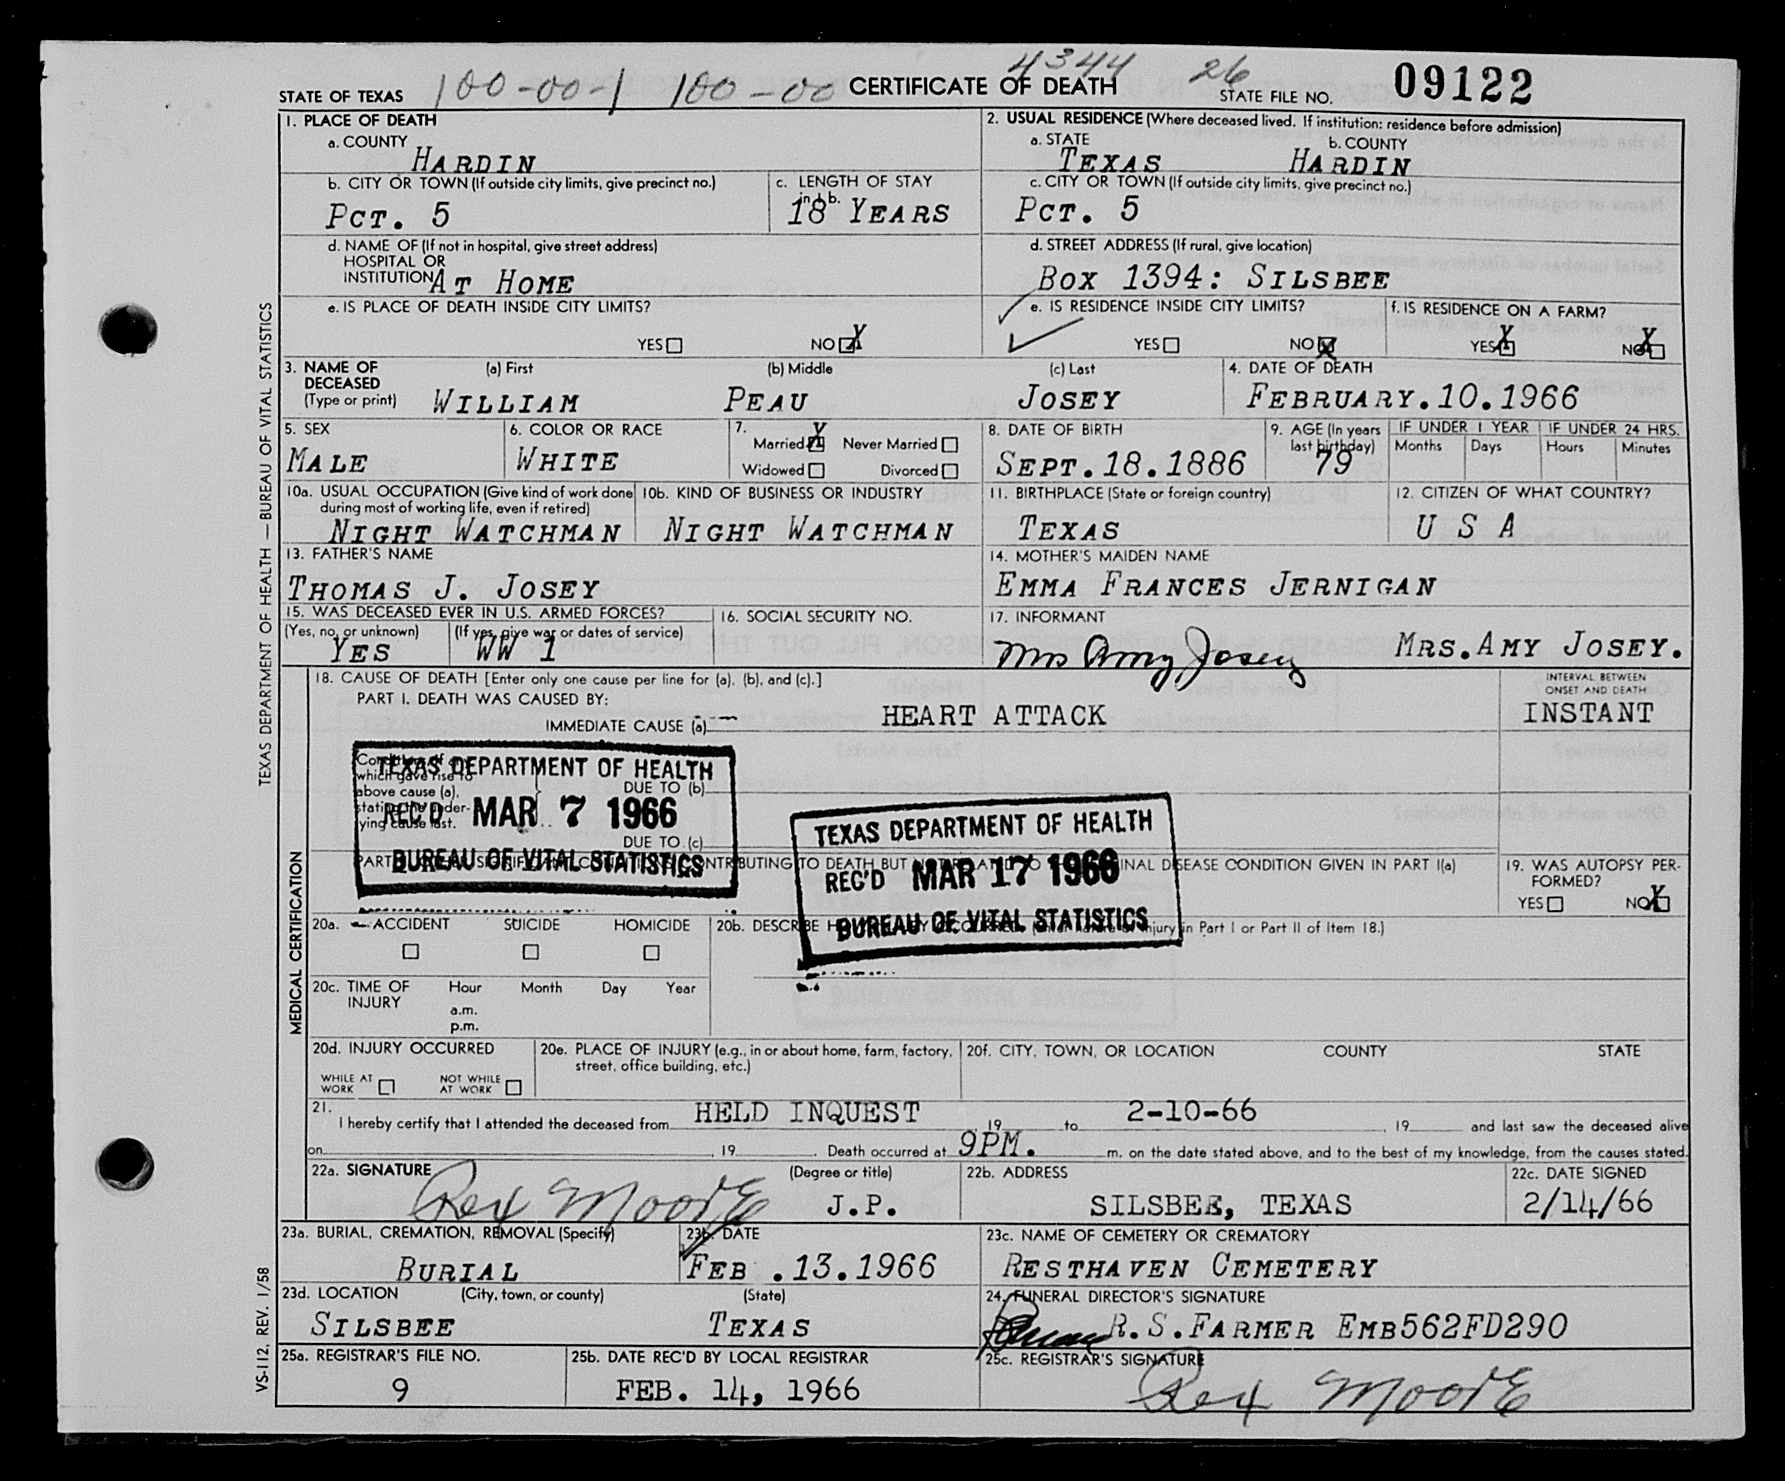 4344 26
STATE OF TEXAS 100-00-1 100-00 CERTIFICATE OF DEATH STATE FILE NO. 09122
1. PLACE OF DEATH
a. COUNTY
HARDIN
2. USUAL RESIDENCE (Where deceased lived. If institution: residence before admission)
a. STATE b. COUNTY
TEXAS HARDIN
b. CITY OR TOWN (If outside city limits, give precinct no.)
PCT. 5
c. LENGTH OF STAY
in 1b.
18 YEARS
c. CITY OR TOWN (If outside city limits, give precinct no.)
PCT. 5
d. NAME OF (If not in hospital, give street address)
HOSPITAL OR
INSTITUTION AT HOME
d. STREET ADDRESS (If rural, give location)
BOX 1394: SILSBEE
e. IS PLACE OF DEATH INSIDE CITY LIMITS?
YES NO X
e. IS RESIDENCE INSIDE CITY LIMITS?
YES NO X
f. IS RESIDENCE ON A FARM?
YES X NO X
3. NAME OF DECEASED (Type or print)
(a) First (b) Middle (c) Last
WILLIAM PEAU JOSEY
4. DATE OF DEATH
FEBRUARY.10.1966
5. SEX
MALE
6. COLOR OR RACE
WHITE
7.
Married X Never Married
Widowed Divorced
8. DATE OF BIRTH
SEPT.18.1886
9. AGE (In years last birthday)
79
IF UNDER 1 YEAR IF UNDER 24 HRS.
Months Days Hours Minutes
10a. USUAL OCCUPATION (Give kind of work done
during most of working life, even if retired)
NIGHT WATCHMAN
10b. KIND OF BUSINESS OR INDUSTRY
NIGHT WATCHMAN
11. BIRTHPLACE (State or foreign country)
TEXAS
12. CITIZEN OF WHAT COUNTRY?
U S A
13. FATHER'S NAME
THOMAS J. JOSEY
14. MOTHER'S MAIDEN NAME
EMMA FRANCES JERNIGAN
15. WAS DECEASED EVER IN U.S. ARMED FORCES?
(Yes, no, or unknown) (If yes, give war or dates of service)
YES WW 1
16. SOCIAL SECURITY NO.
17. INFORMANT
Mrs Amy Josey MRS.AMY JOSEY.
18. CAUSE OF DEATH [Enter only one cause per line for (a), (b), and (c).]
PART I. DEATH WAS CAUSED BY:
IMMEDIATE CAUSE (a) HEART ATTACK
INTERVAL BETWEEN
ONSET AND DEATH
INSTANT
Conditions, if any,
which gave rise to
above cause (a),
stating the under-
lying cause last.
DUE TO (b)
DUE TO (c)
TEXAS DEPARTMENT OF HEALTH
REC'D MAR 7 1966
BUREAU OF VITAL STATISTICS
TEXAS DEPARTMENT OF HEALTH
REC'D MAR 17 1966
BUREAU OF VITAL STATISTICS
PART II. OTHER SIGNIFICANT CONDITIONS CONTRIBUTING TO DEATH BUT NOT RELATED TO THE TERMINAL DISEASE CONDITION GIVEN IN PART I(a)
19. WAS AUTOPSY PER-
FORMED?
YES NO X
20a. ACCIDENT SUICIDE HOMICIDE
20b. DESCRIBE HOW INJURY OCCURRED. (Enter nature of injury in Part I or Part II of Item 18.)
20c. TIME OF INJURY Hour Month Day Year
a.m.
p.m.
20d. INJURY OCCURRED
WHILE AT WORK NOT WHILE AT WORK
20e. PLACE OF INJURY (e.g., in or about home, farm, factory,
street, office building, etc.)
20f. CITY, TOWN, OR LOCATION COUNTY STATE
21.
I hereby certify that I attended the deceased from HELD INQUEST 19 to 2-10-66, 19 and last saw the deceased alive
on , 19 . Death occurred at 9PM. m, on the date stated above, and to the best of my knowledge, from the causes stated.
22a. SIGNATURE (Degree or title)
Rex Moore J.P.
22b. ADDRESS
SILSBEE, TEXAS
22c. DATE SIGNED
2/14/66
23a. BURIAL, CREMATION, REMOVAL (Specify)
BURIAL
23b. DATE
FEB .13.1966
23c. NAME OF CEMETERY OR CREMATORY
RESTHAVEN CEMETERY
23d. LOCATION (City, town, or county) (State)
SILSBEE TEXAS
24. FUNERAL DIRECTOR'S SIGNATURE
R.S.FARMER EMB562FD290
25a. REGISTRAR'S FILE NO.
9
25b. DATE REC'D BY LOCAL REGISTRAR
FEB. 14, 1966
25c. REGISTRAR'S SIGNATURE
Rex Moore
TEXAS DEPARTMENT OF HEALTH — BUREAU OF VITAL STATISTICS
MEDICAL CERTIFICATION
VS-112, REV. 1/58